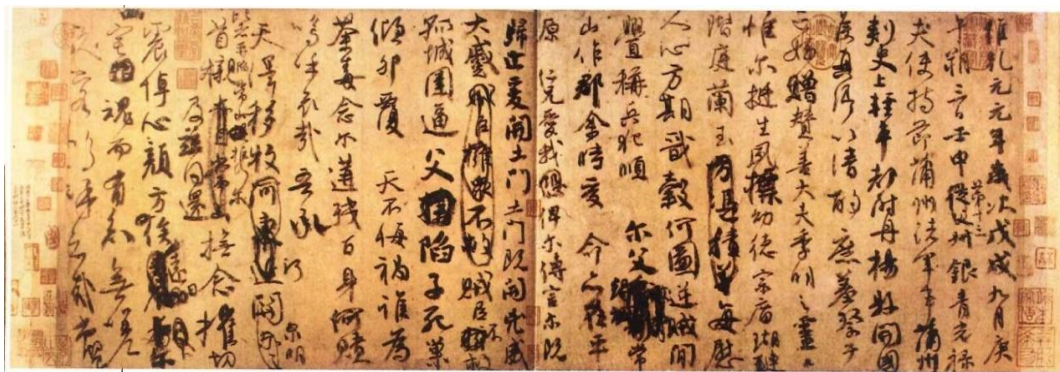 維乾元元年歲次戊戌九月庚
午朔三日壬申第十三叔銀青光祿
夫使持節蒲州諸軍事蒲州
刺史上輕車都尉丹楊縣開國
侯真卿以清酌庶羞祭于
亡姪贈贊善大夫季明之靈曰
惟爾挺生夙標幼德宗廟瑚璉
階庭蘭玉方憑積善每慰
人心方期戩穀何圖逆賊閒
釁稱兵犯順爾父竭誠常
山作郡余時受命亦在平
原仁兄愛我俾爾傳言爾既
歸止爰開土門土門既開凶威
大蹙賊臣擁眾不救賊臣不救
孤城圍逼父陷子死巢
傾卵覆天不悔禍誰為
荼毒念爾遘殘百身何贖
嗚乎哀哉吾承
天澤移牧河關泉明
比者再陷常山攜爾
首櫬及茲同還撫念摧切
震悼心顏方俟遠日
宅魂而有知無嗟
久客嗚呼哀哉尚饗